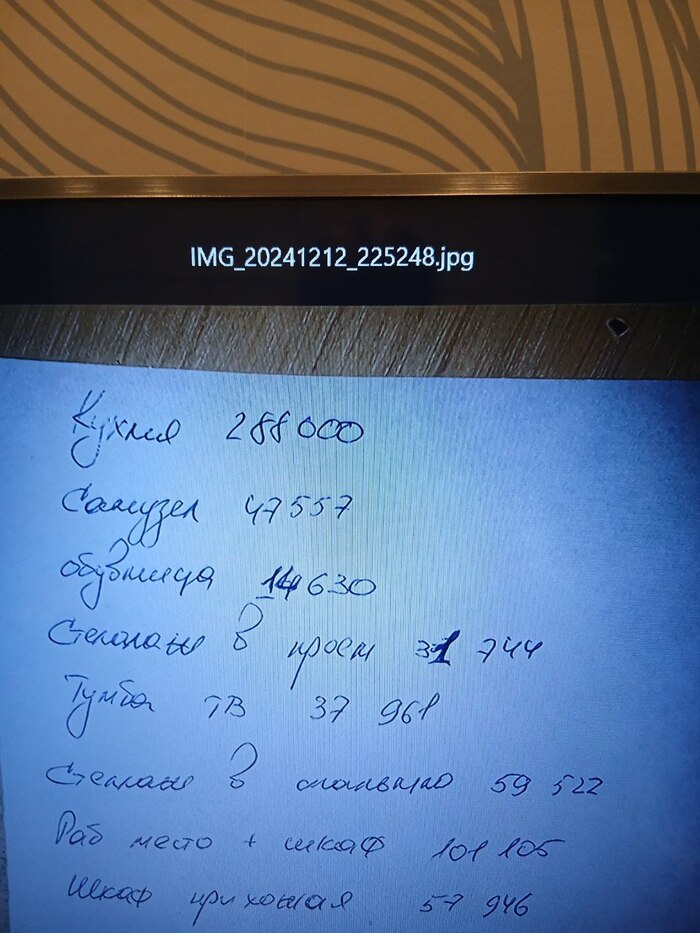 IMG_20241212_225248.jpg
Кухня 288000
Санузел 47557
обувница 14630
Стеллаж в проем 31 744
Тумба ТВ 37 961
Стеллаж в спальню 59 522
Раб место + шкаф 101 105
Шкаф прихожая 57 946